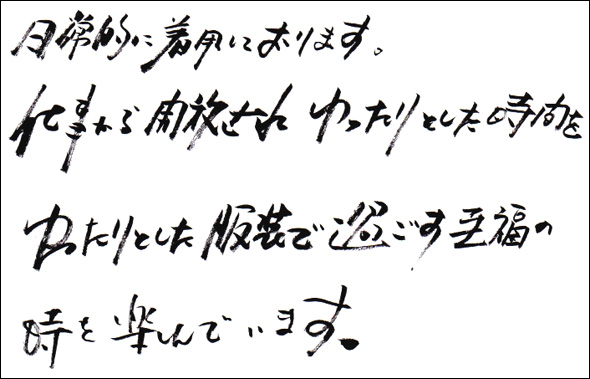 日常的に着用しております。
仕事から開放され ゆったりとした時間を
ゆったりとした服装で過ごす至福の
時を楽しんでいます。